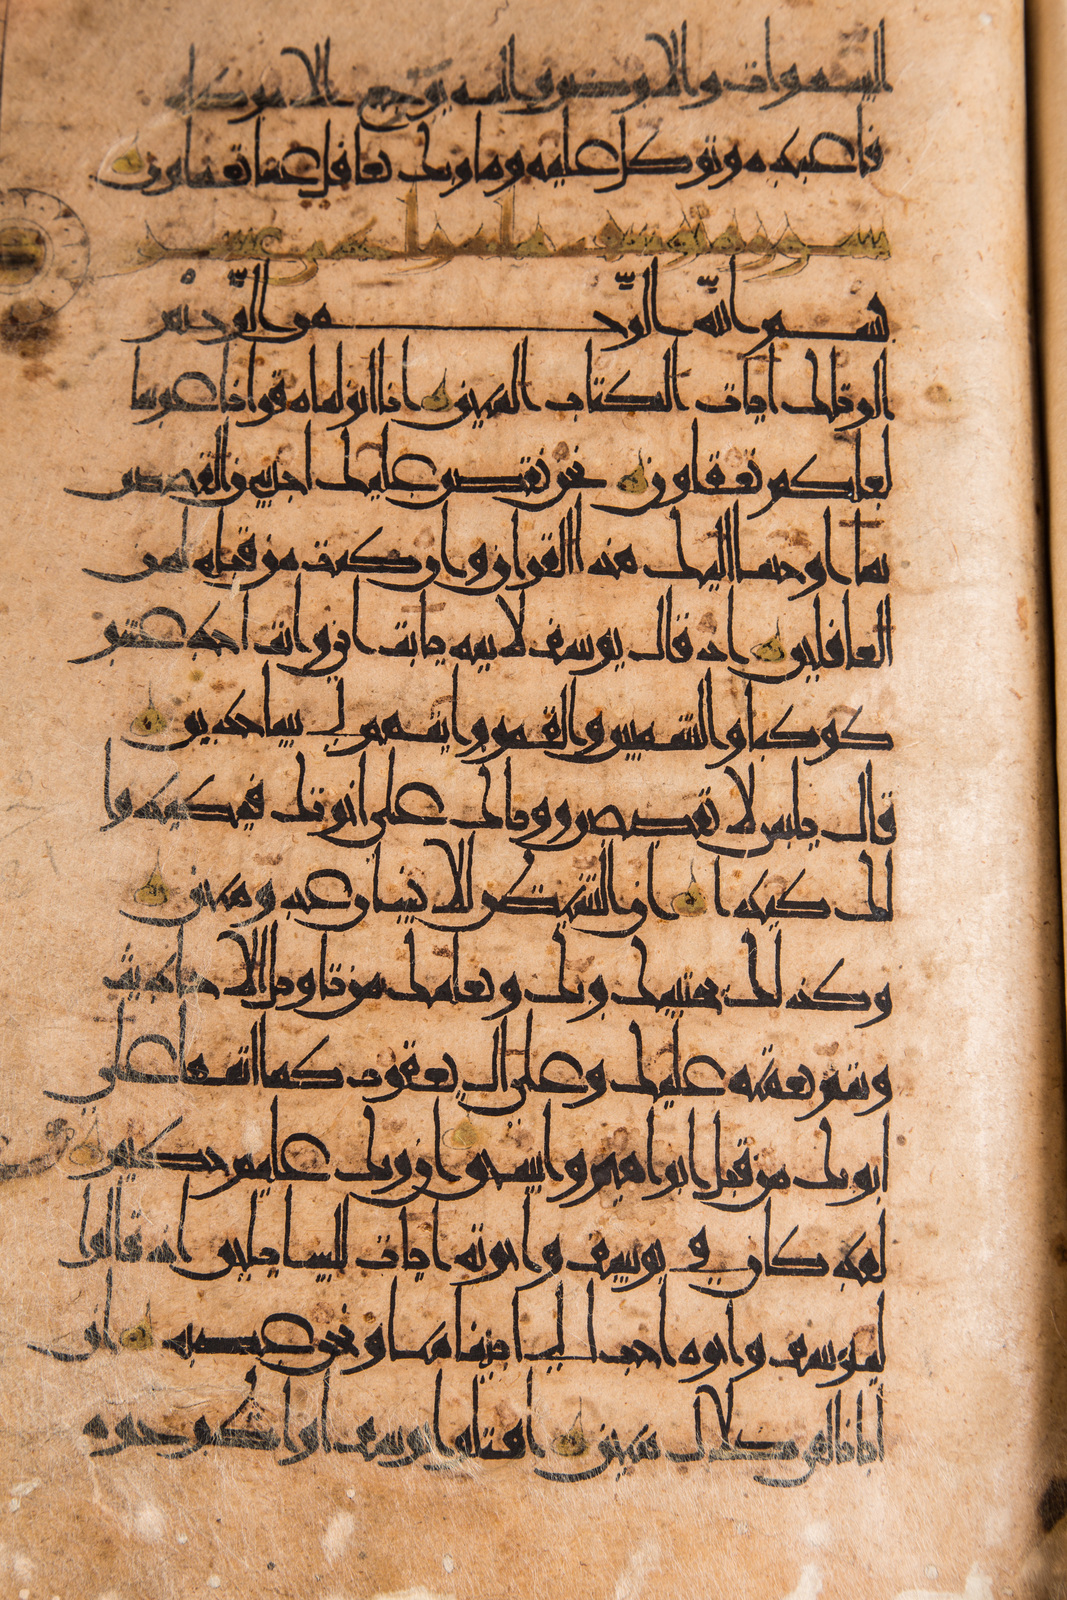 السموات والارض واليه يرجع الامر كله
فاعبده وتوكل عليه وما ربك بغافل عما تعملون
سورة يوسف
بسم الله الرحمن الرحيم
الر تلك ايات الكتاب المبين انا انزلناه قرانا عربيا
لعلكم تعقلون نحن نقص عليك احسن القصص
بما اوحينا اليك هذا القران وان كنت من قبله لمن
الغافلين اذ قال يوسف لابيه يابت اني رايت احد عشر
كوكبا والشمس والقمر رايتهم لي ساجدين
قال يابني لا تقصص روياك على اخوتك فيكيدوا
لك كيدا ان الشيطان للانسان عدو مبين
وكذلك يجتبيك ربك ويعلمك من تاويل الاحاديث
ويتم نعمته عليك وعلى ال يعقوب كما اتمها على
ابويك من قبل ابراهيم واسحق ان ربك عليم حكيم
لقد كان في يوسف واخوته ايات للسايلين اذ قالوا
ليوسف واخوه احب الى ابينا منا ونحن عصبة ان
ابانا لفي ضلال مبين اقتلوا يوسف او اطرحوه